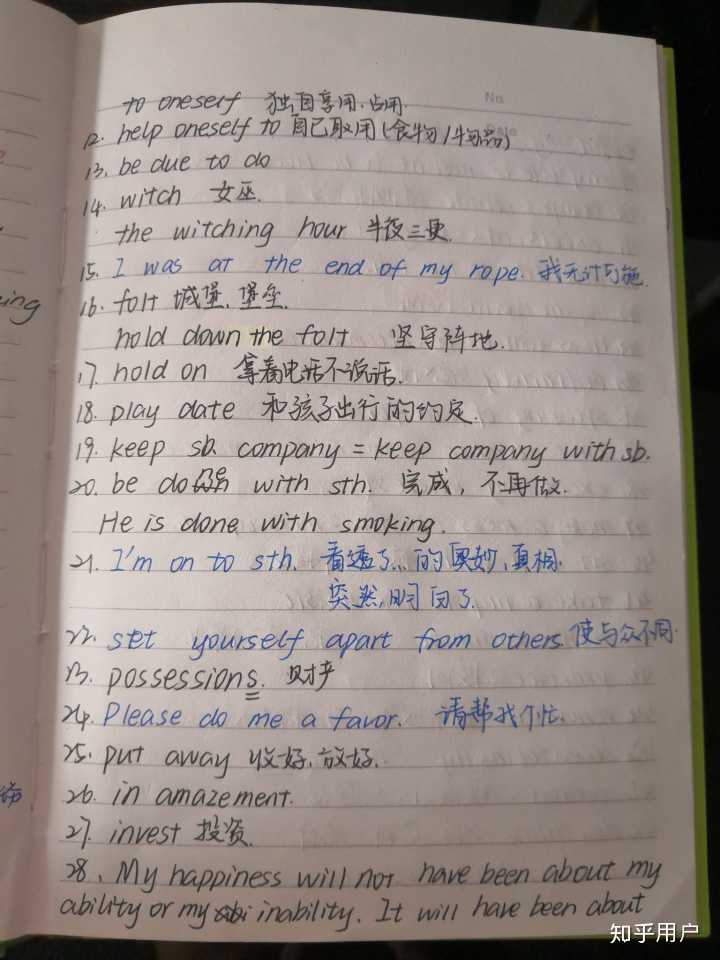 No
Date
to oneself 独自享用、占用.
12. help oneself to 自己取用(食物/物品)
13. be due to do
14. witch 女巫.
the witching hour 半夜三更.
15. I was at the end of my rope. 我无计可施.
16. folt 城堡、堡垒.
hold down the folt 坚守阵地.
17. hold on 拿着电话不说话.
18. play date 和孩子出行的约定.
19. keep sb. company = keep company with sb.
20. be do with sth. 完成, 不再做.
He is done with smoking.
21. I'm on to sth. 看透了...的奥妙、真相.
突然明白了.
22. set yourself apart from others. 使与众不同.
23. possessions. 财产
24. Please do me a favor. 请帮我个忙.
25. put away 收好、放好.
26. in amazement.
27. invest 投资.
28. My happiness will not have been about my
ability or my inability. It will have been about
ing
知乎用户